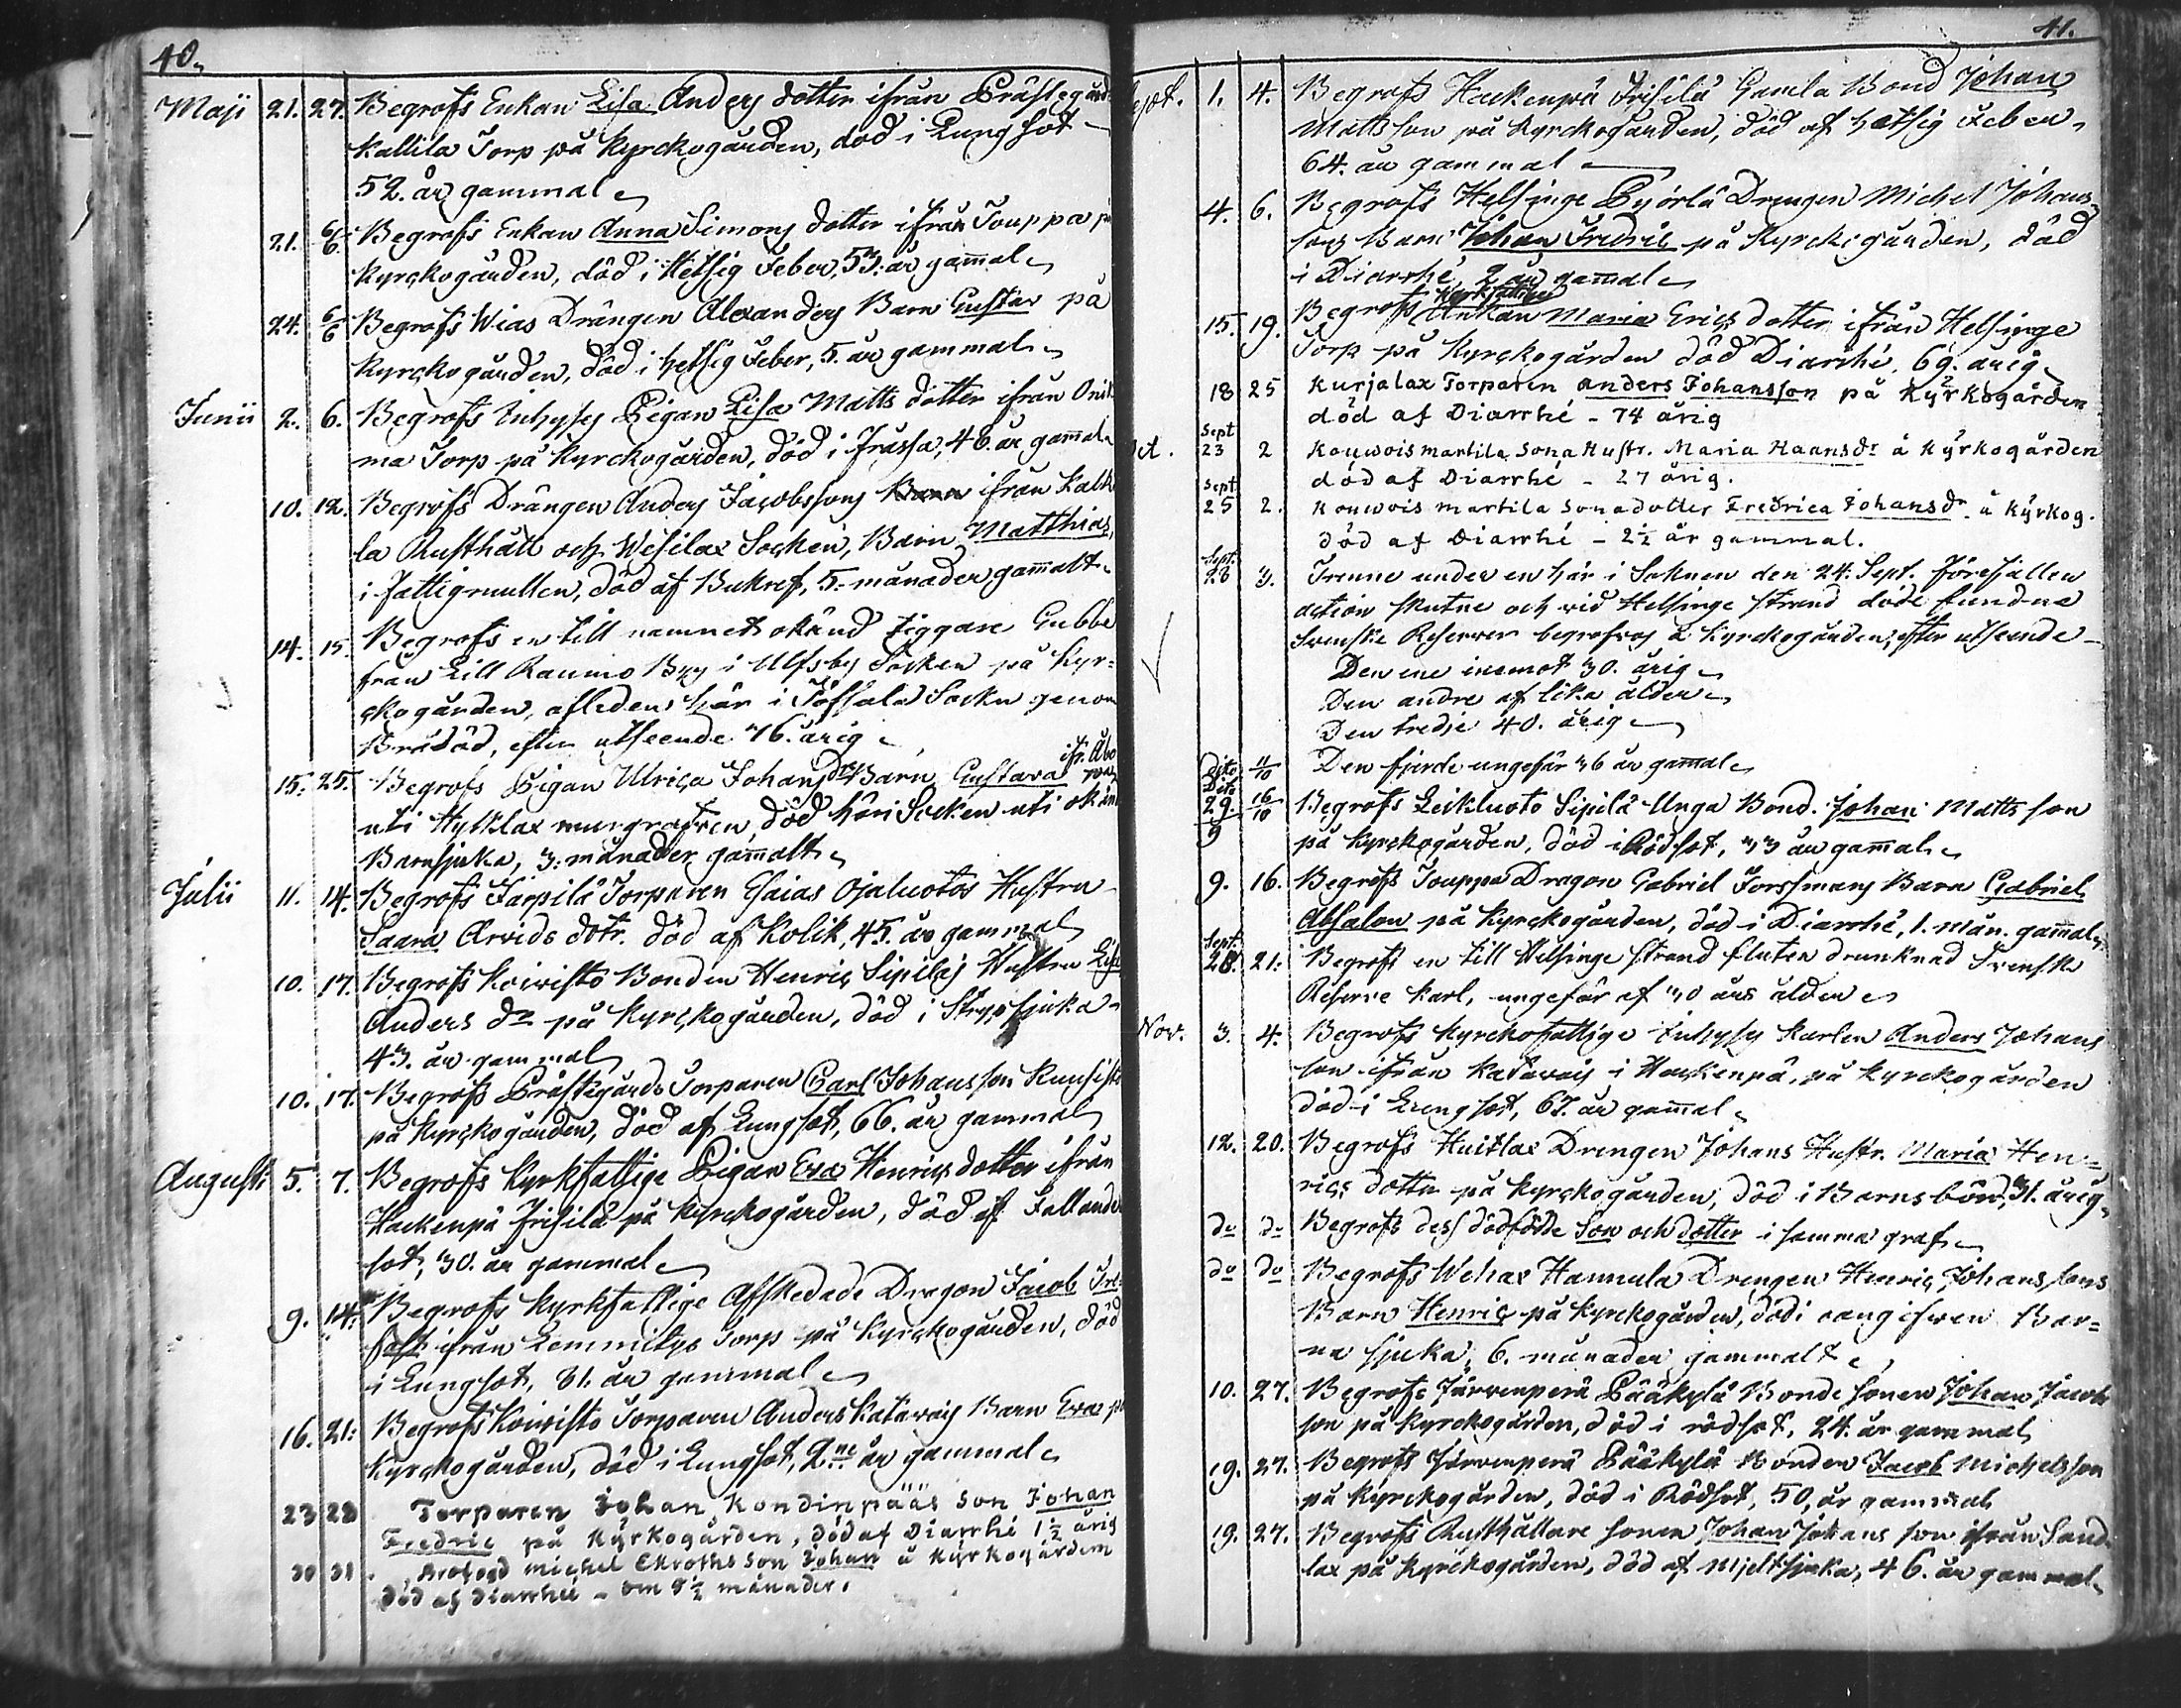 40.
Maji 21. 27. Begrofs Enkan Lisa Anders dotter ifrån Prästegårds
Kallila Torp på Kyrckogården, död i Lungsot
52. år gammal
21. 6/6. Begrofs Enkan Anna Simons dotter ifrån Jouppa på
Kyrckogården, död i Hetsig Feber, 53. år gamal
24. 6/6 Begrofs Wias Drängen Alexanders Barn Gustav på
Kyrckogården, död i hetsig Feber, 5. år gammal
Junii 2. 6. Begrofs Inhyses Pigan Lisa Matts dotter ifrån
ma Torp på Kyrckogården, död i Frässa, 46. år gamal
10. 12. Begrofs Drängen Anders Jacobssons Barn ifrån
la Rusthåll och Wesilax Socken, Barn Matthias,
i Fattigmullen, död af Bukref, 5. månader gamalt
14. 15. Begrofs en till namnet okänd tiggare Gubbe
från Lill Raumo By i Ulfsby Socken på Kyr=
ckogården, afleden här i Töfsala Sockn genom
Brådöd, efter utseende 76. årig
15. 25. Begrofs Pigan Ulrica Johansdrs Barn Gustava ifr. Åbo
uti Hylklax murgrafven, död här i Socken uti okänd
Barnsjuka, 3. månader gamalt
Julii 11. 14. Begrofs Farpilä Torparen Esaias Ojaluotos Hustru
Saara Arvids dotr. död af Kolik, 45. år gammal
10. 17. Begrofs Koivisto Bonden Henric Sipiläs Hustru Lisa
Anders dr på Kyrckogården, död i Strypsjuka
43. år gammal
10. 17. Begrofs Prästegårds Torparen Carl Johansson
på Kyrckogården, död af Lungsot, 66. år gammal
Augusti 5. 7. Begrofs Kyrkfattige Pigan Eva Henrics dotter ifrån
Hackenpä Frisilä på Kyrckogården, död af Fallande
sot, 30. år gammal
9. 14. Begrofs Kyrkfattige Afskedade Dragon Jacob
fast ifrån Lemmiktys Torp på Kyrckogården, död
i Lungsot, 81. år gammal
16. 21. Begrofs Koivisto Torparen Anders Katavais Barn Eva på
Kyrckogården, död i Lungsot, 2ne år gammal
23 28 Torparen Johan Kondinpääs Son Johan
Fredric på Kyrkogården, död af Diarrhé 1½ årig
30 31. michel Ekroths Son Johan å Kyrkogården
död af diarrhé – om 8½ månader.
41.
Sept. 1. 4. Begrofs Hackenpä Frisilä Gamla Bond Johan
Mattsson på Kyrckogården, död af hetsig Feber,
64. år gammal
4. 6. Begrofs Helsinge Björlä Drengen Michel Johans
sons Barn Johan Fredric på Kyrckogården, död
i Diarrhé, 2 år gamal
Kyrkfattige
15. 19. Begrofs Enkan Maria Erics dotter ifrån Helsinge
Torp på Kyrckogården död Diarrhé, 69. årig
18 25 Kurjalax Torparen anders Johansson på Kyrkogården
död af Diarrhé – 74 årig
Oct. Sept 23 2 Kouwois martila Sona Hustr. Maria Haansdr å Kyrkogården
död af Diarrhé – 27 årig.
Sept 25 2. Kouwois martila Sonadotter Fredrica Johansdr å Kyrkog.
död af Diarrhé – 2½ år gammal.
Sept. 28 3. Trenne under en här i Soknen den 24. Sept. förefallen
action skutne och vid Helsinge strand döde fundna
Svenske Reserver begrofvos å Kyrckogården, efter utseende
Den ene inemot 30. årig
Den andre af lika ålder
Den tredje 40. årig
Dito 11/10 Den fjerde ungefär 36 år gamal
Dito 29./9 16/10 Begrofs Leikluoto Sipilä Unga Bond. Johan Mattsson
på Kyrckogården, död i Rödsot, 33 år gamal
9. 16. Begrofs Jouppa Dragon Gabriel Forssmans Barn Gabriel
Absalon på Kyrckogården, död i Diarrhé, 1. mån. gamal
Sept. 28. 21. Begrofs en till Helsinge strand fluten drunknad Svensk
Reserve Karl, ungefär af 30 års ålder
Nov. 3. 4. Begrofs Kyrckofattige Inhyses Karlen Anders Johans
son ifrån Katavais i Hackenpä, på Kyrckogården
död i Lungsot, 67. år gamal
12. 20. Begrofs Huitlax Drengen Johans Hustr. Maria Hen=
rics dotter på Kyrckogården, död i Barnsbörd, 31. årig
do do Begrofs dess dödfödde Son och dotter i samma graf
do do Begrofs Wehax Hannula Drengen Henric Johanssons
Barn Henric på Kyrckogården, död i oangifven Bar=
na sjuka, 6. månader gammalt
10. 27. Begrofs Järvenperä Pääkylä Bonde sonen Johan Jacobs
son på Kyrckogården, död i rödsot, 24. år gammal
19. 27. Begrofs Järvenperä Pääkylä Bonden Jacob Michelsson
på Kyrckogården, död i Rödsot, 50, år gammal
19. 27. Begrofs Rusthållare sonen Johan Johansson ifrån Sand
lax på Kyrckogården, död af Mjeltsjuka, 46. år gammal